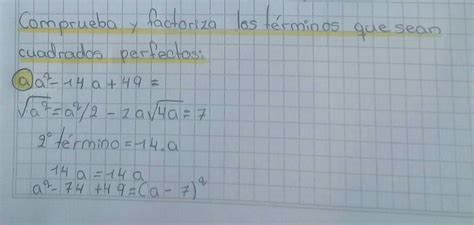 Comprueba y factoriza los términos que sean
cuadrados perfectos:
a a² - 14a + 49 =
√a² = a²/2 - 2a√4a = 7
2° término = 14.a
14a = 14a
a² - 74 + 49 = (a - 7)²